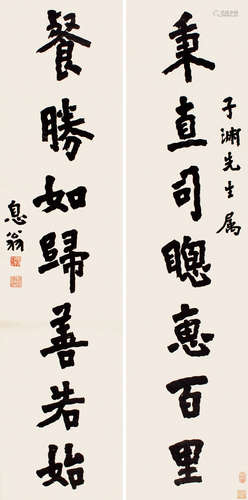 秉直司聰惠百里
子渊先生属
餐勝如歸善若始
息翁